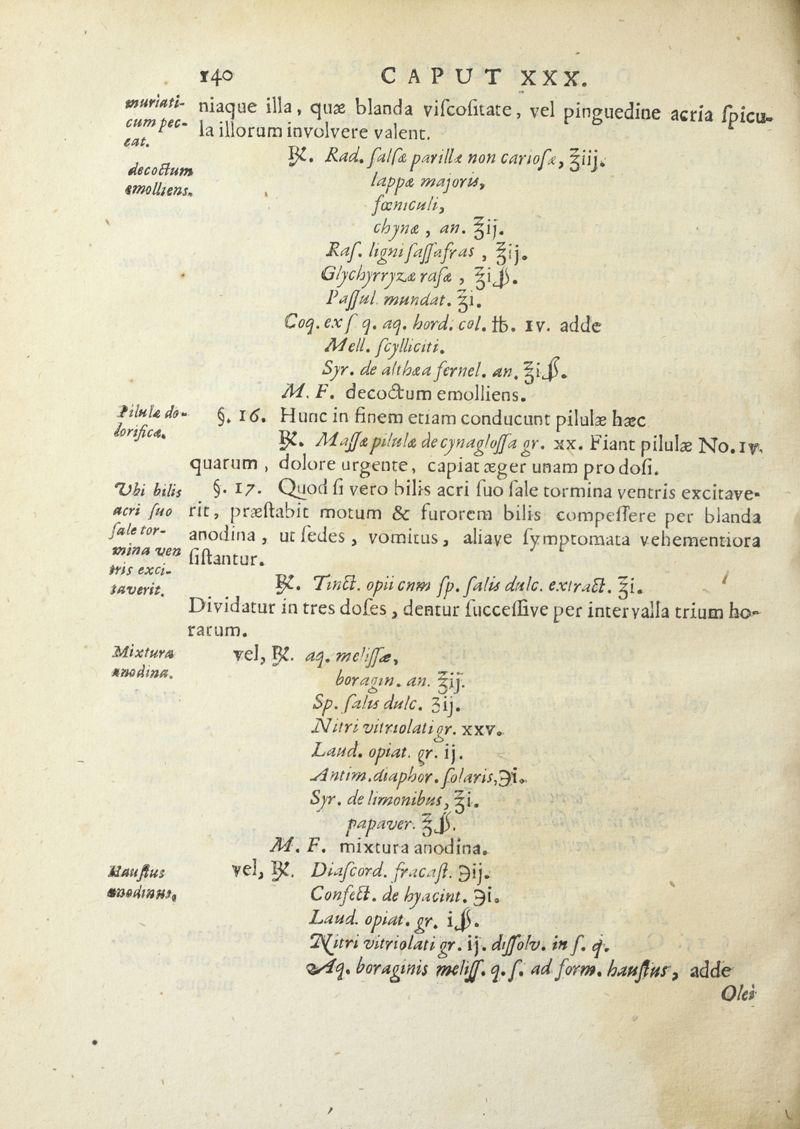 140 CAPUT XXX.
muriati-
cum pec-
cat.
niaque illa, quæ blanda viſcoſitate, vel pinguedine acria ſpicu-
la illorum involvere valent.
decoctum
emolliens.
℞. Rad. ſalſæ parillæ non carioſæ, ℥iij.
lappæ majoris,
fœniculi,
chynæ, an. ℥ij.
Raſ. ligni ſaſſafras, ℥ij.
Glychyrryzæ raſæ, ℥iβ.
Paſſul. mundat. ℥i.
Coq. ex ſ q. aq. hord. col. ℔. IV. adde
Mell. ſcylliciti.
Syr. de althæa fernel. an. ℥iβ.
M. F. decoctum emolliens.
Pilulæ do-
lorificæ.
§. 16. Hunc in finem etiam conducunt pilulæ hæc
℞. Maſſæ pilulæ de cynagloſſa gr. xx. Fiant pilulæ No. IV.
quarum, dolore urgente, capiat æger unam pro doſi.
Vbi bilis
acri ſuo
ſale tor-
mina ven
tris exci-
taverit.
§. 17. Quod ſi vero bilis acri ſuo ſale tormina ventris excitave-
rit, præſtabit motum & furorem bilis compeſſere per blanda
anodina, ut ſedes, vomitus, aliave ſymptomata vehementiora
ſiſtantur.
℞. Tinct. opii cnm ſp. ſalis dulc. extract. ℥i.
Dividatur in tres doſes, dentur ſucceſſive per intervalla trium ho-
rarum.
Mixtura
anodina.
vel, ℞. aq. meliſſæ,
boragin. an. ℥ij.
Sp. ſalis dulc. ʒij.
Nitri vitriolati gr. xxv.
Laud. opiat. gr. ij.
Antim. diaphor. ſolaris, ℈i.
Syr. de limonibus, ℥i.
papaver. ℥β.
M. F. mixtura anodina.
Hauſtus
anodinus,
vel, ℞. Diaſcord. fracaſt. ℈ij.
Confect. de hyacint. ℈i.
Laud. opiat. gr. iβ.
Nitri vitriolati gr. ij. diſſolv. in ſ. q.
Aq. boraginis meliſſ. q. ſ. ad form. hauſtus, adde
Olei